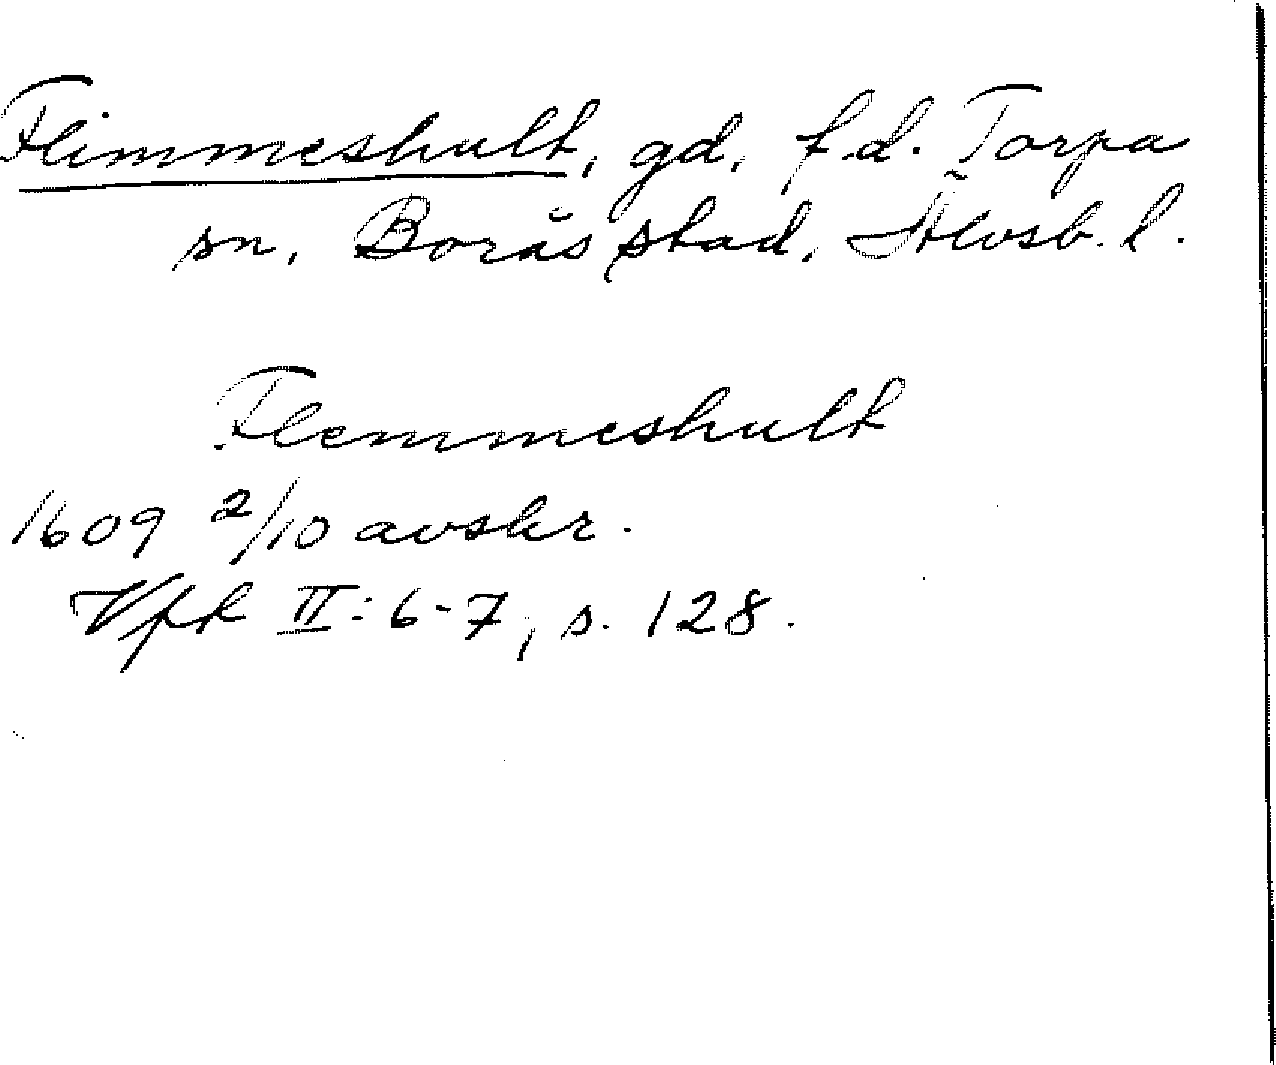 Flimmeshult, gd, f.d. Torpa
sn, Borås stad, Älvsb. l.
Flemmeshult
1609 2/10 avskr.
Vfk II: 6-7, s. 128.